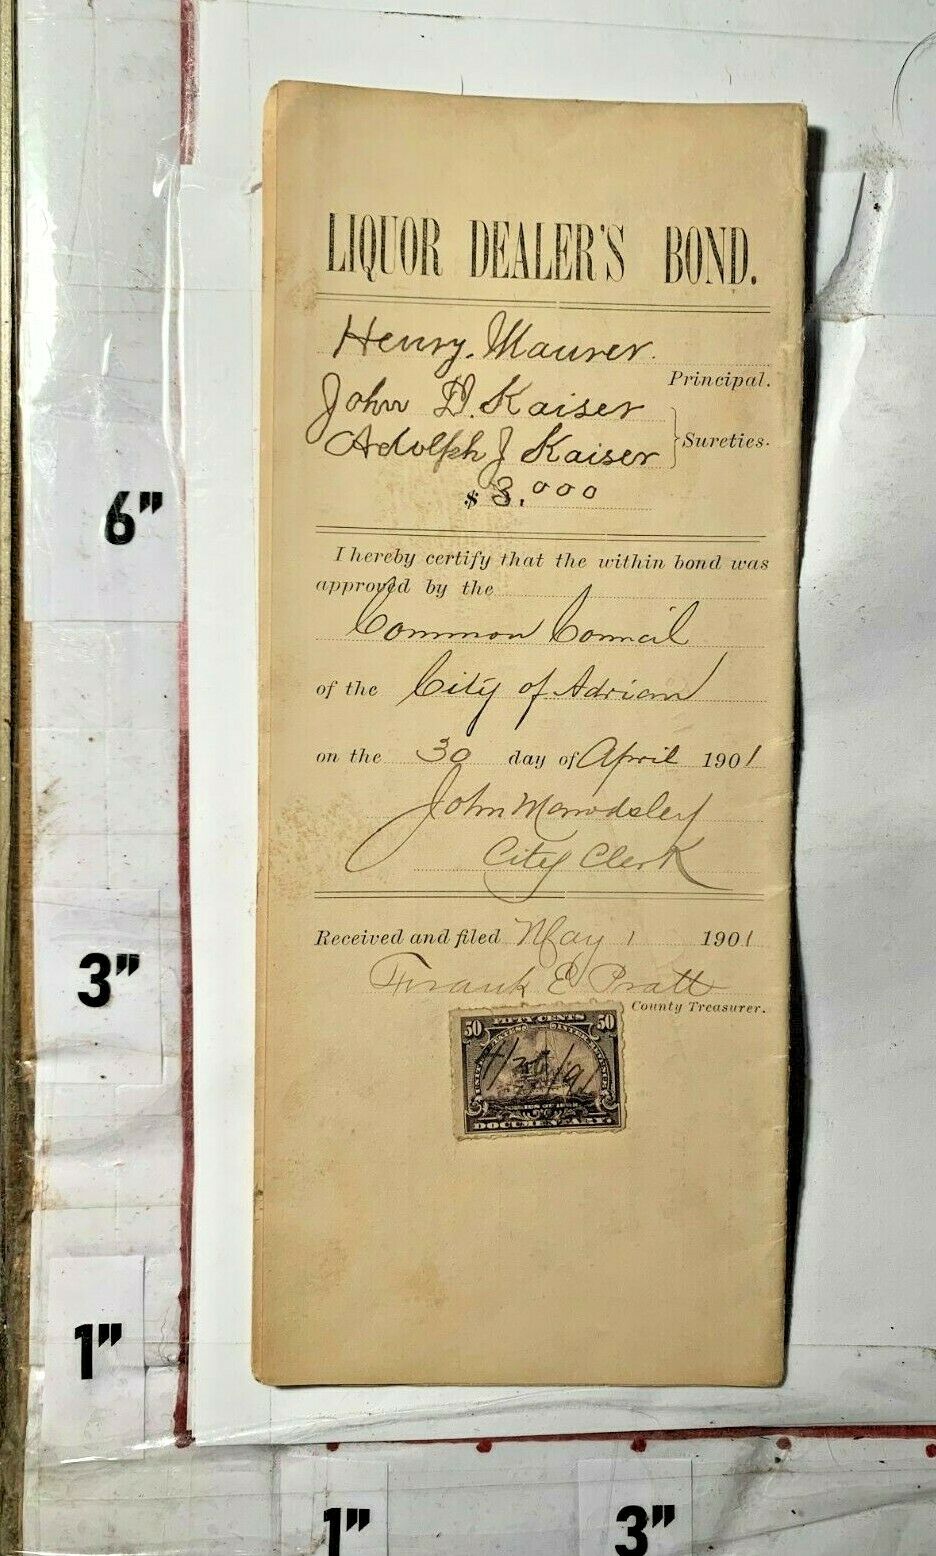 LIQUOR DEALER'S BOND.
Henry. Maurer.
Principal.
John D. Kaiser
Adolph J Kaiser
Sureties.
$ 3,000
I hereby certify that the within bond was
approved by the
Common Council
of the City of Adrian
on the 30 day of April 1901
John Mawdsley
City Clerk
Received and filed May 1 1901
Frank E Pratt
County Treasurer.
50 FIFTY CENTS 50
DOCUMENTARY.
6"
3"
1"
1" 3"